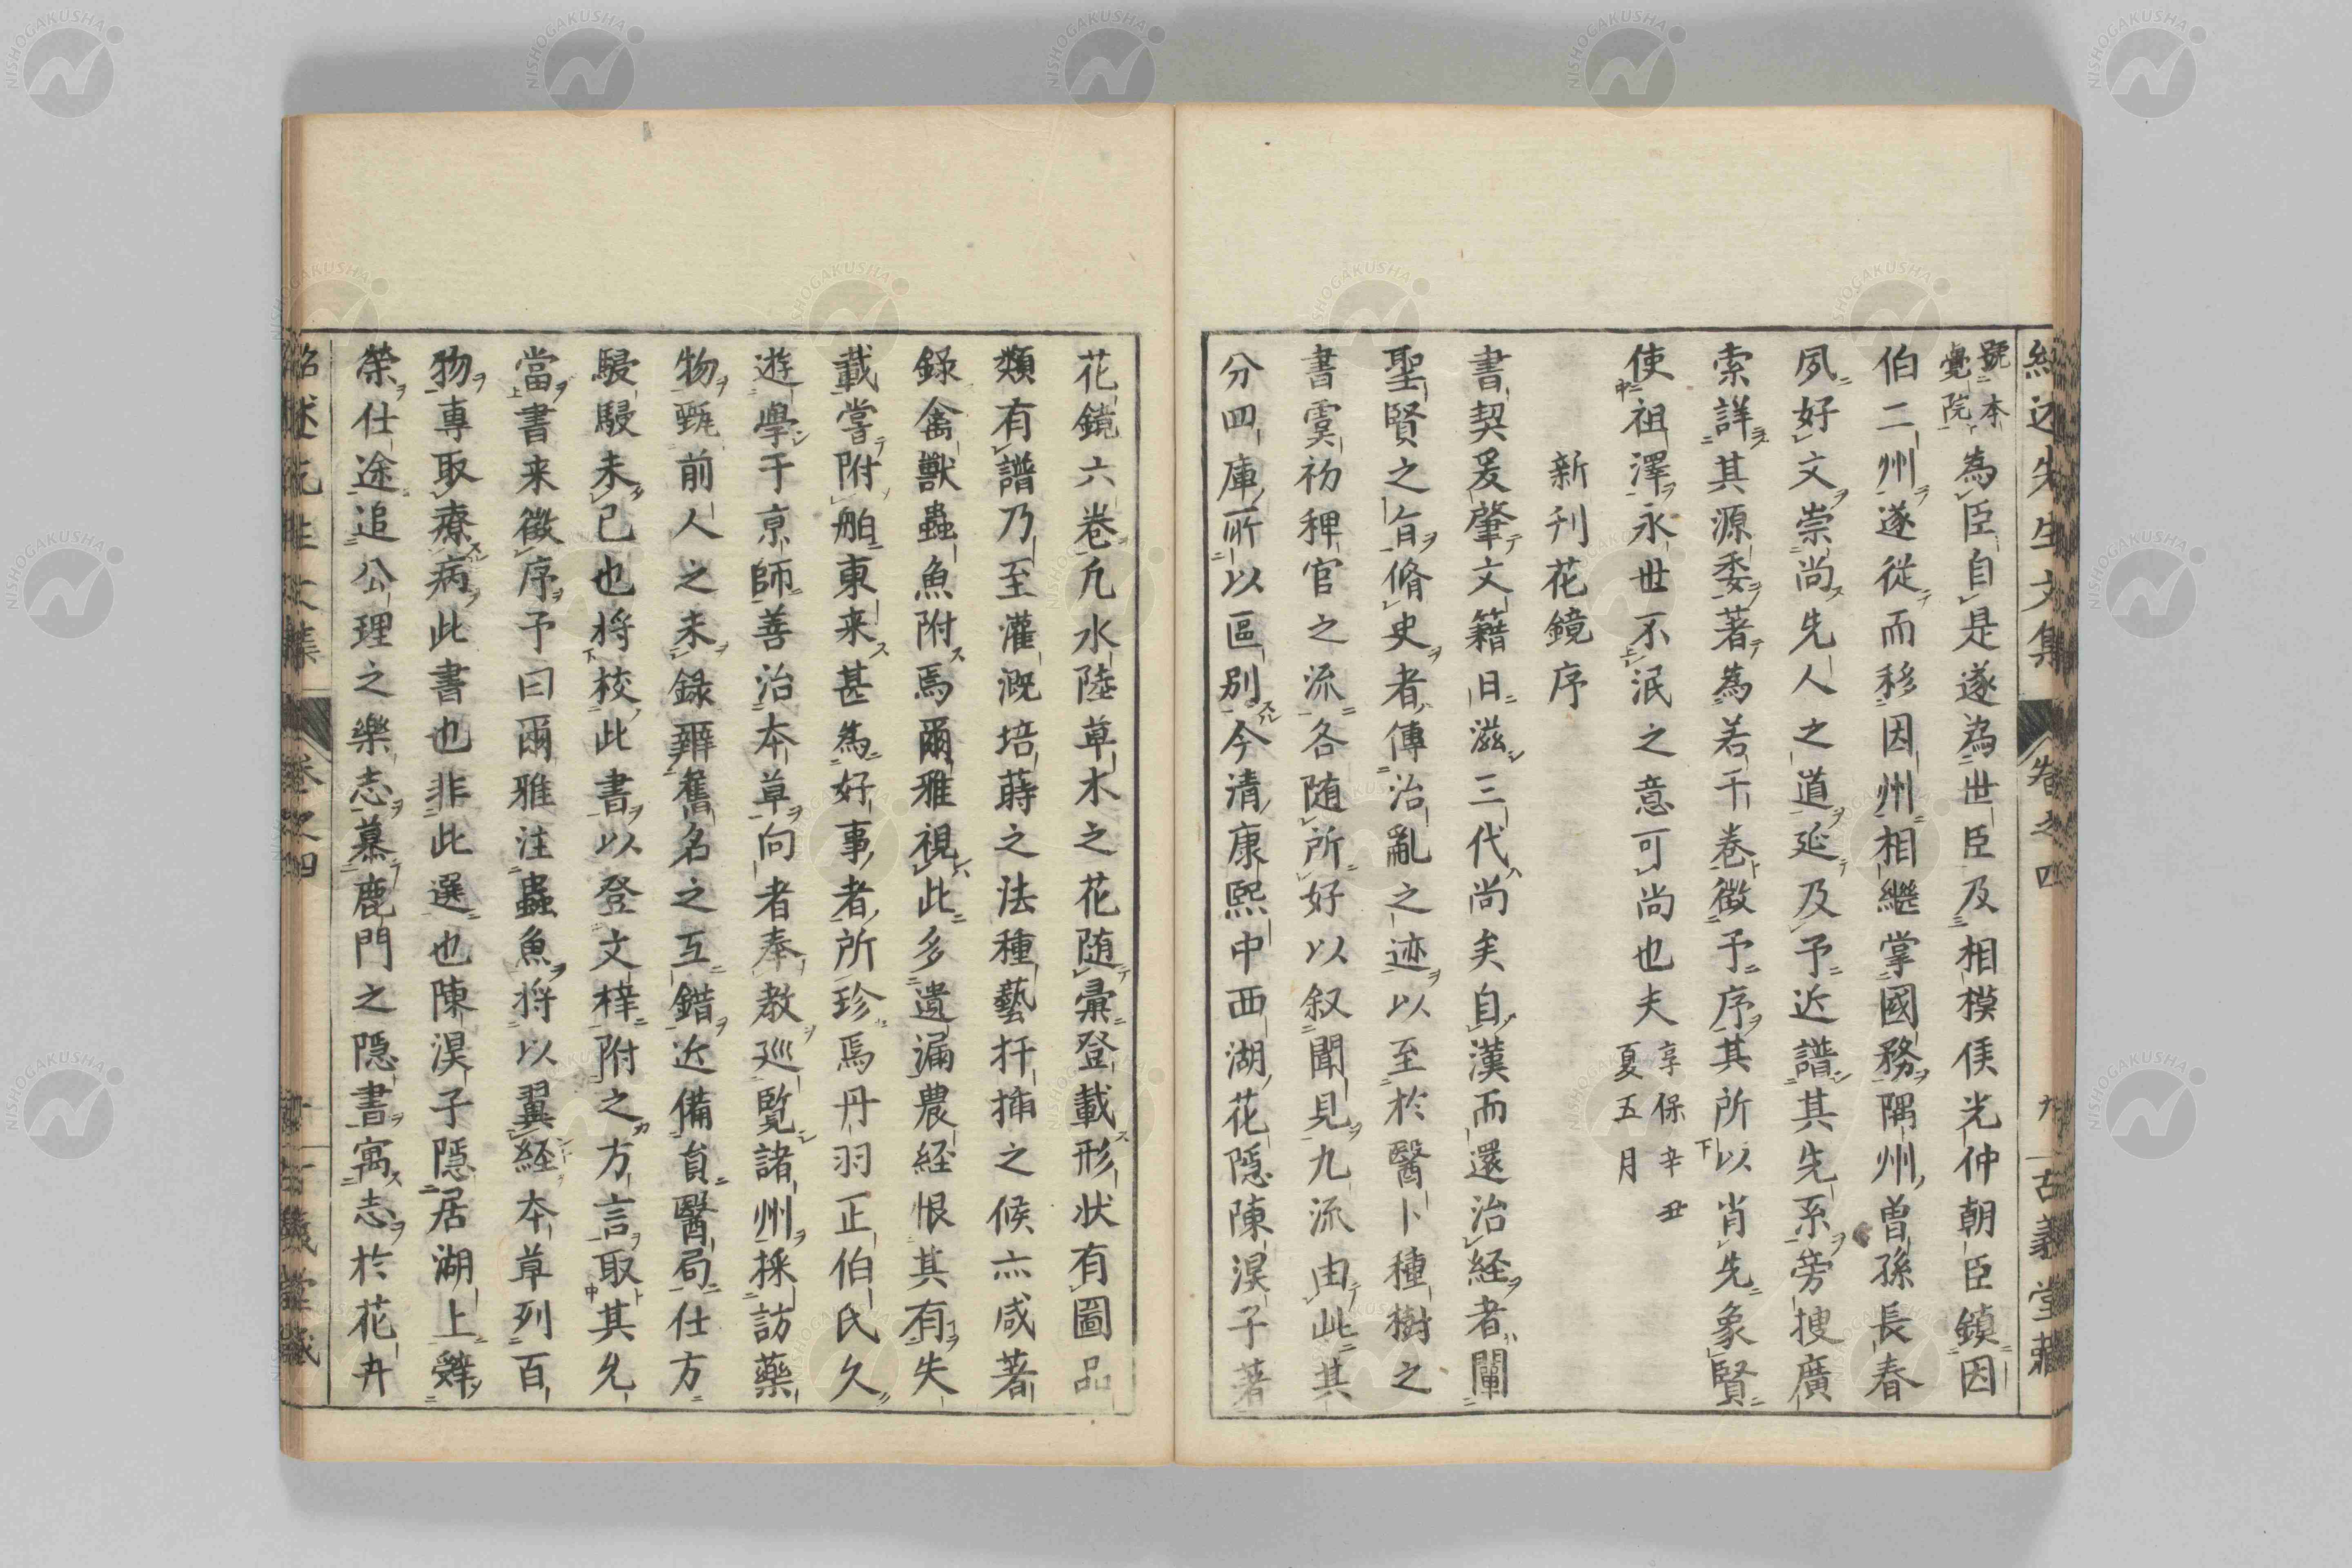 紹述先生文集 卷之四 九 古義堂藏
號本覺院為臣自是遂為世臣及相模侯光仲朝臣鎮因
伯二州遂從而移因州相繼掌國務隅州曽孫長春
夙好文崇尚先人之道延及予近譜其先系旁捜廣
索詳其源委著為若干卷徵予序其所以肖先象賢
使祖澤永世不泯之意可尚也夫享保辛丑夏五月
新刊花鏡序
書契爰肇文籍日滋三代尚矣自漢而還治経者闡
聖賢之㫖脩史者傳治亂之迹以至於醫卜種樹之
書虞初稗官之流各随所好以叙聞見九流由此其
分四庫所以區别今清康熙中西湖花隠陳淏子著
花鏡六卷凢水陸草木之花随彙登載形状有圖品
類有譜乃至灌溉培蒔之法種藝扦揷之候亦咸著
錄禽獸蟲魚附焉爾雅視此多遺漏農経恨其有失
載嘗附舶東来甚為好事者所珍焉丹羽正伯氏久
遊學于京師善治本草向者奉教廵覧諸州採訪藥
物甄前人之未録辨舊名之互錯近備貟醫局仕方
駸駸未已也将校此書以登文梓附之方言取其允
當書来徵序予曰爾雅注蟲魚将以翼経本草列百
物專取療病此書也非此選也陳淏子隠居湖上辤
榮仕途追公理之樂志慕鹿門之隠書寓志於花卉
紹述先生文集 卷之四 十 古義堂藏